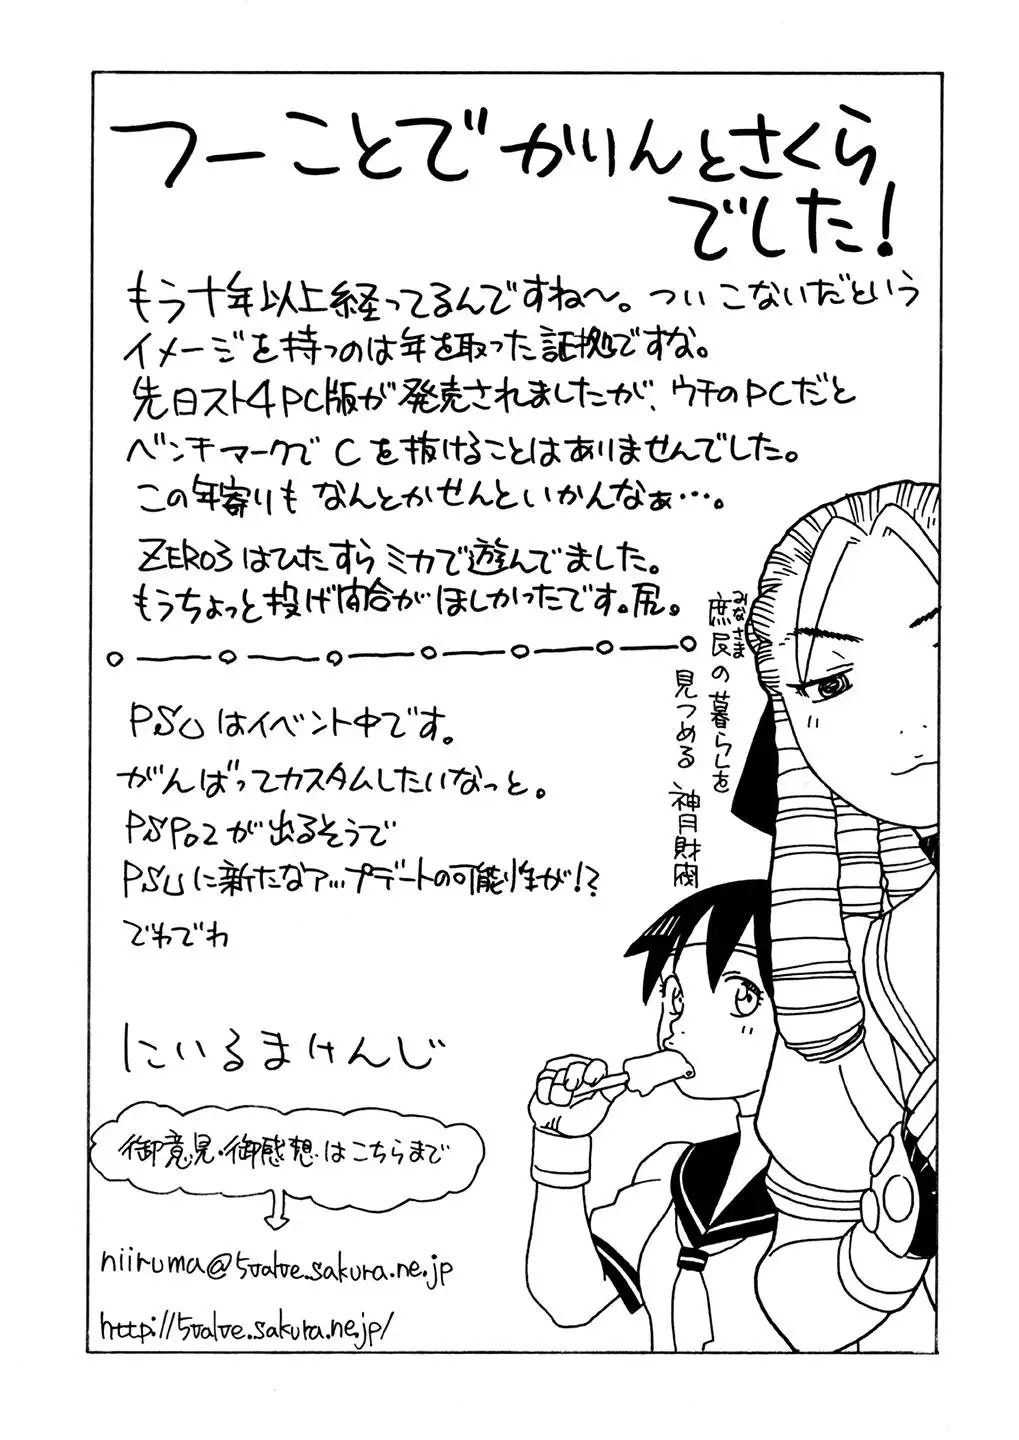 つーことでかりんとさくら
でした!
もう十年以上経ってるんですね〜。ついこないだという
イメージを持つのは年を取った証拠ですな。
先日スト4PC版が発売されましたが、ウチのPCだと
ベンチマークでCを抜けることはありませんでした。
この年寄りもなんとかせんといかんなぁ…。
ZERO3はひたすらミカで遊んでました。
もうちょっと投げ間合がほしかったです。尻。
庶民の暮らしを
みなさま
見つめる 神月財閥
PSUはイベント中です。
がんばってカスタムしたいなっと。
PSPo2が出るそうで
PSUに新たなアップデートの可能性が!?
でわでわ
にいるまけんじ
御意見・御感想はこちらまで
niiruma@5valve.sakura.ne.jp
http://5valve.sakura.ne.jp/